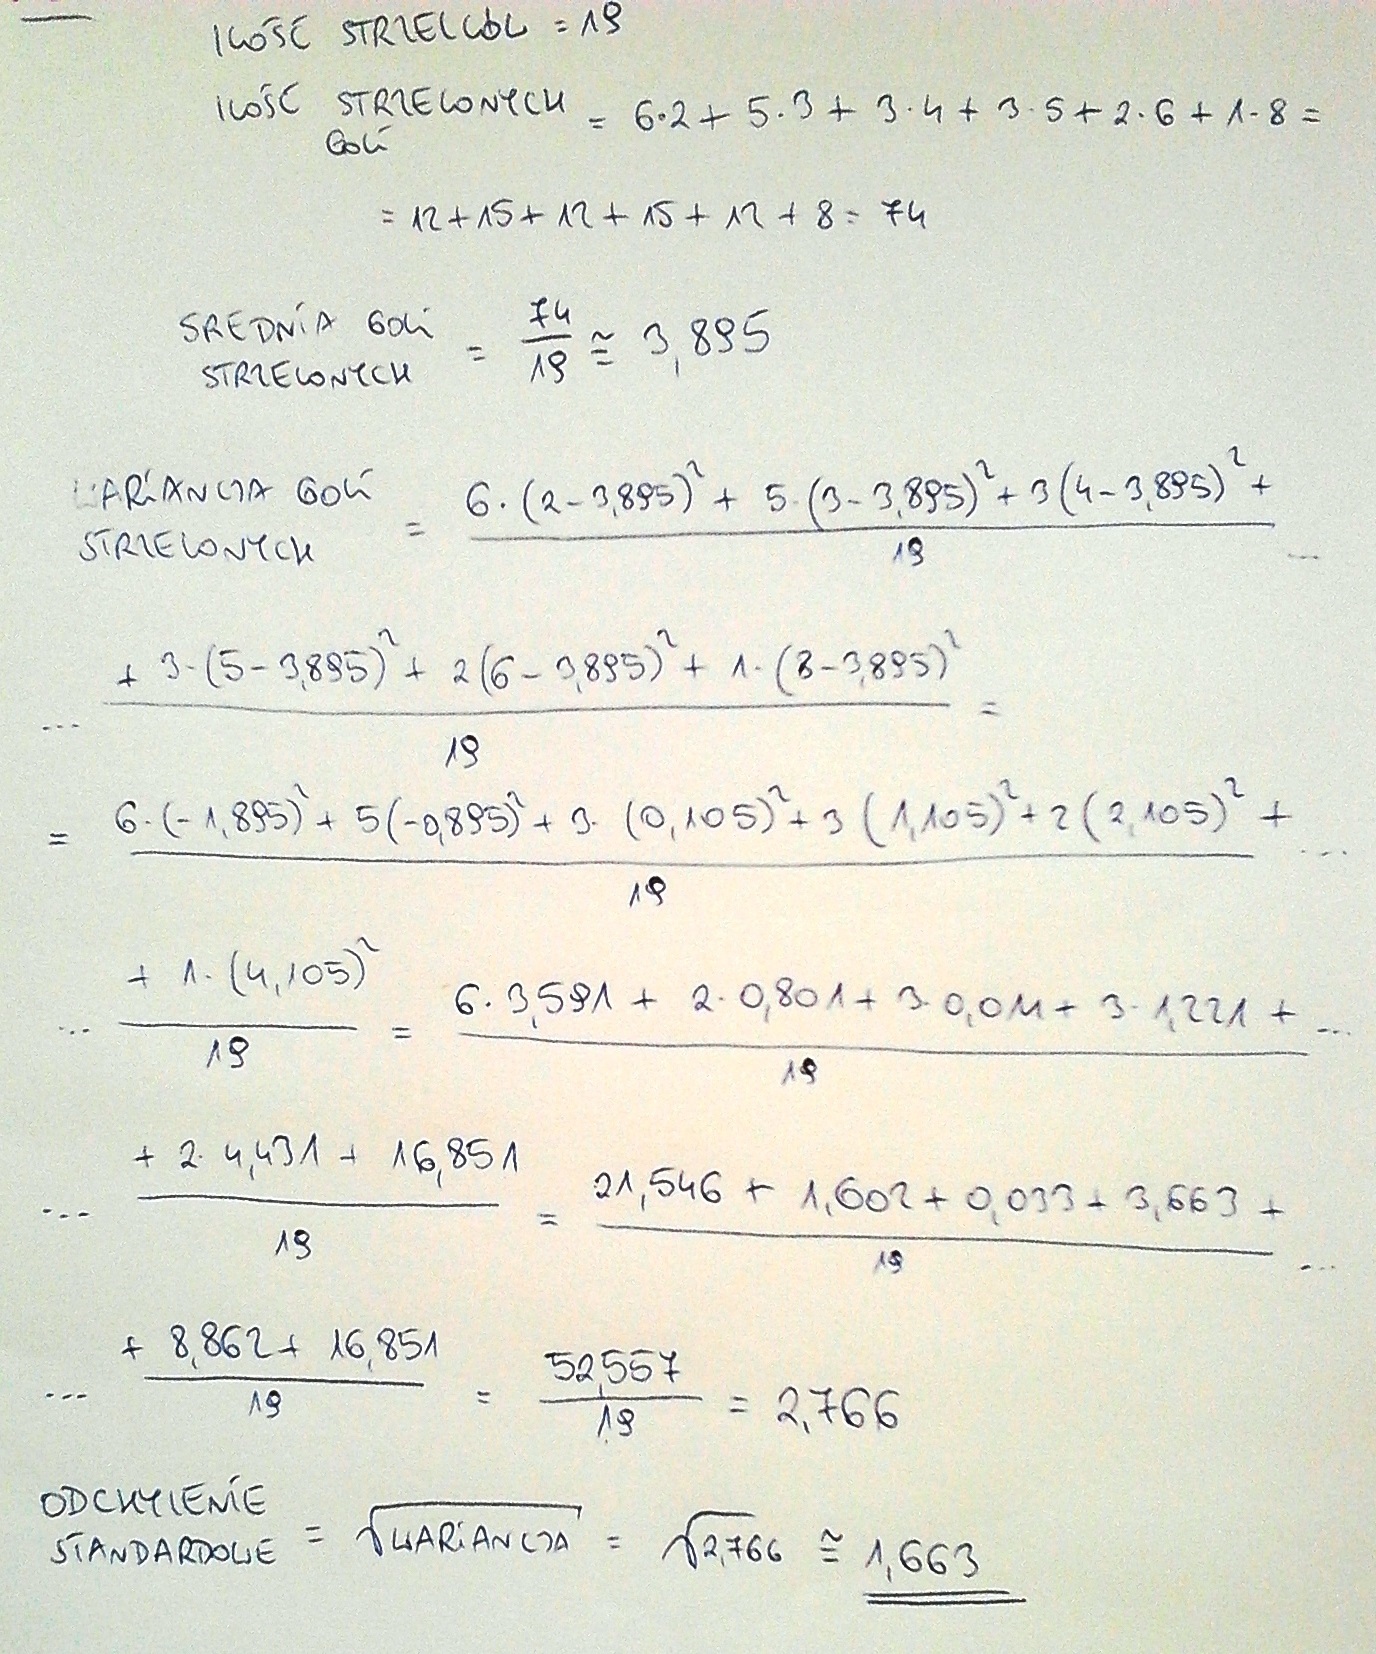 ILOŚĆ STRZELCÓW = 19
ILOŚĆ STRZELONYCH GOLI = 6·2 + 5·3 + 3·4 + 3·5 + 2·6 + 1·8 =
= 12 + 15 + 12 + 15 + 12 + 8 = 74
SREDNIA GOLI STRZELONYCH = 74/19 ≅ 3,895
WARIANCJA GOLI STRZELONYCH = 6·(2-3,895)² + 5·(3-3,895)² + 3(4-3,895)² + / 19 ...
... + 3·(5-3,895)² + 2(6-3,895)² + 1·(8-3,895)² / 19 =
= 6·(-1,895)² + 5(-0,895)² + 3·(0,105)² + 3(1,105)² + 2(2,105)² + / 19 ...
... + 1·(4,105)² / 19 = 6·3,591 + 2·0,801 + 3·0,011 + 3·1,221 + / 19 ...
... + 2·4,431 + 16,851 / 19 = 21,546 + 1,602 + 0,033 + 3,663 + / 19 ...
... + 8,862 + 16,851 / 19 = 52,557 / 19 = 2,766
ODCHYLENIE STANDARDOWE = √WARIANCJA = √2,766 ≅ 1,663